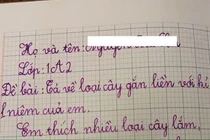 Họ và tên:
Lớp: 1A2
Đề bài: Tả về loài cây gắn liền với kỉ
niệm của em.
Em thích nhiều loài cây lắm.